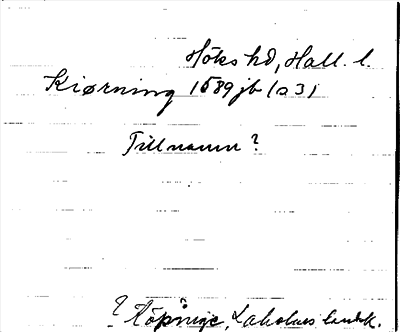 Höks hd, Hall. l.
Kiørning 1589 jb (a 3)
Tillnamn?
? Köpinge, Laholms landsk.